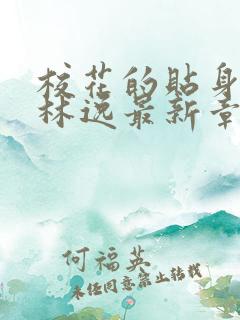 校花的贴身
林逸最新章
何福英
未经同意禁止转载